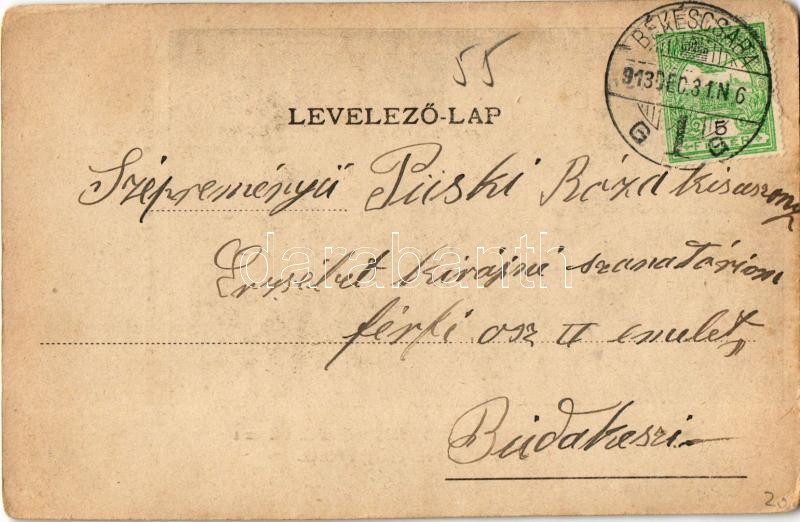 55
BÉKÉSCSABA
913 DEC. 31 N 6
G 1 G
5
FILLÉR
LEVELEZŐ-LAP
Szépreményü Püski Róza kisaszony
Erzsébet Királyné szanatórium
férfi osz II emelet
Budakeszi
darabanth
20